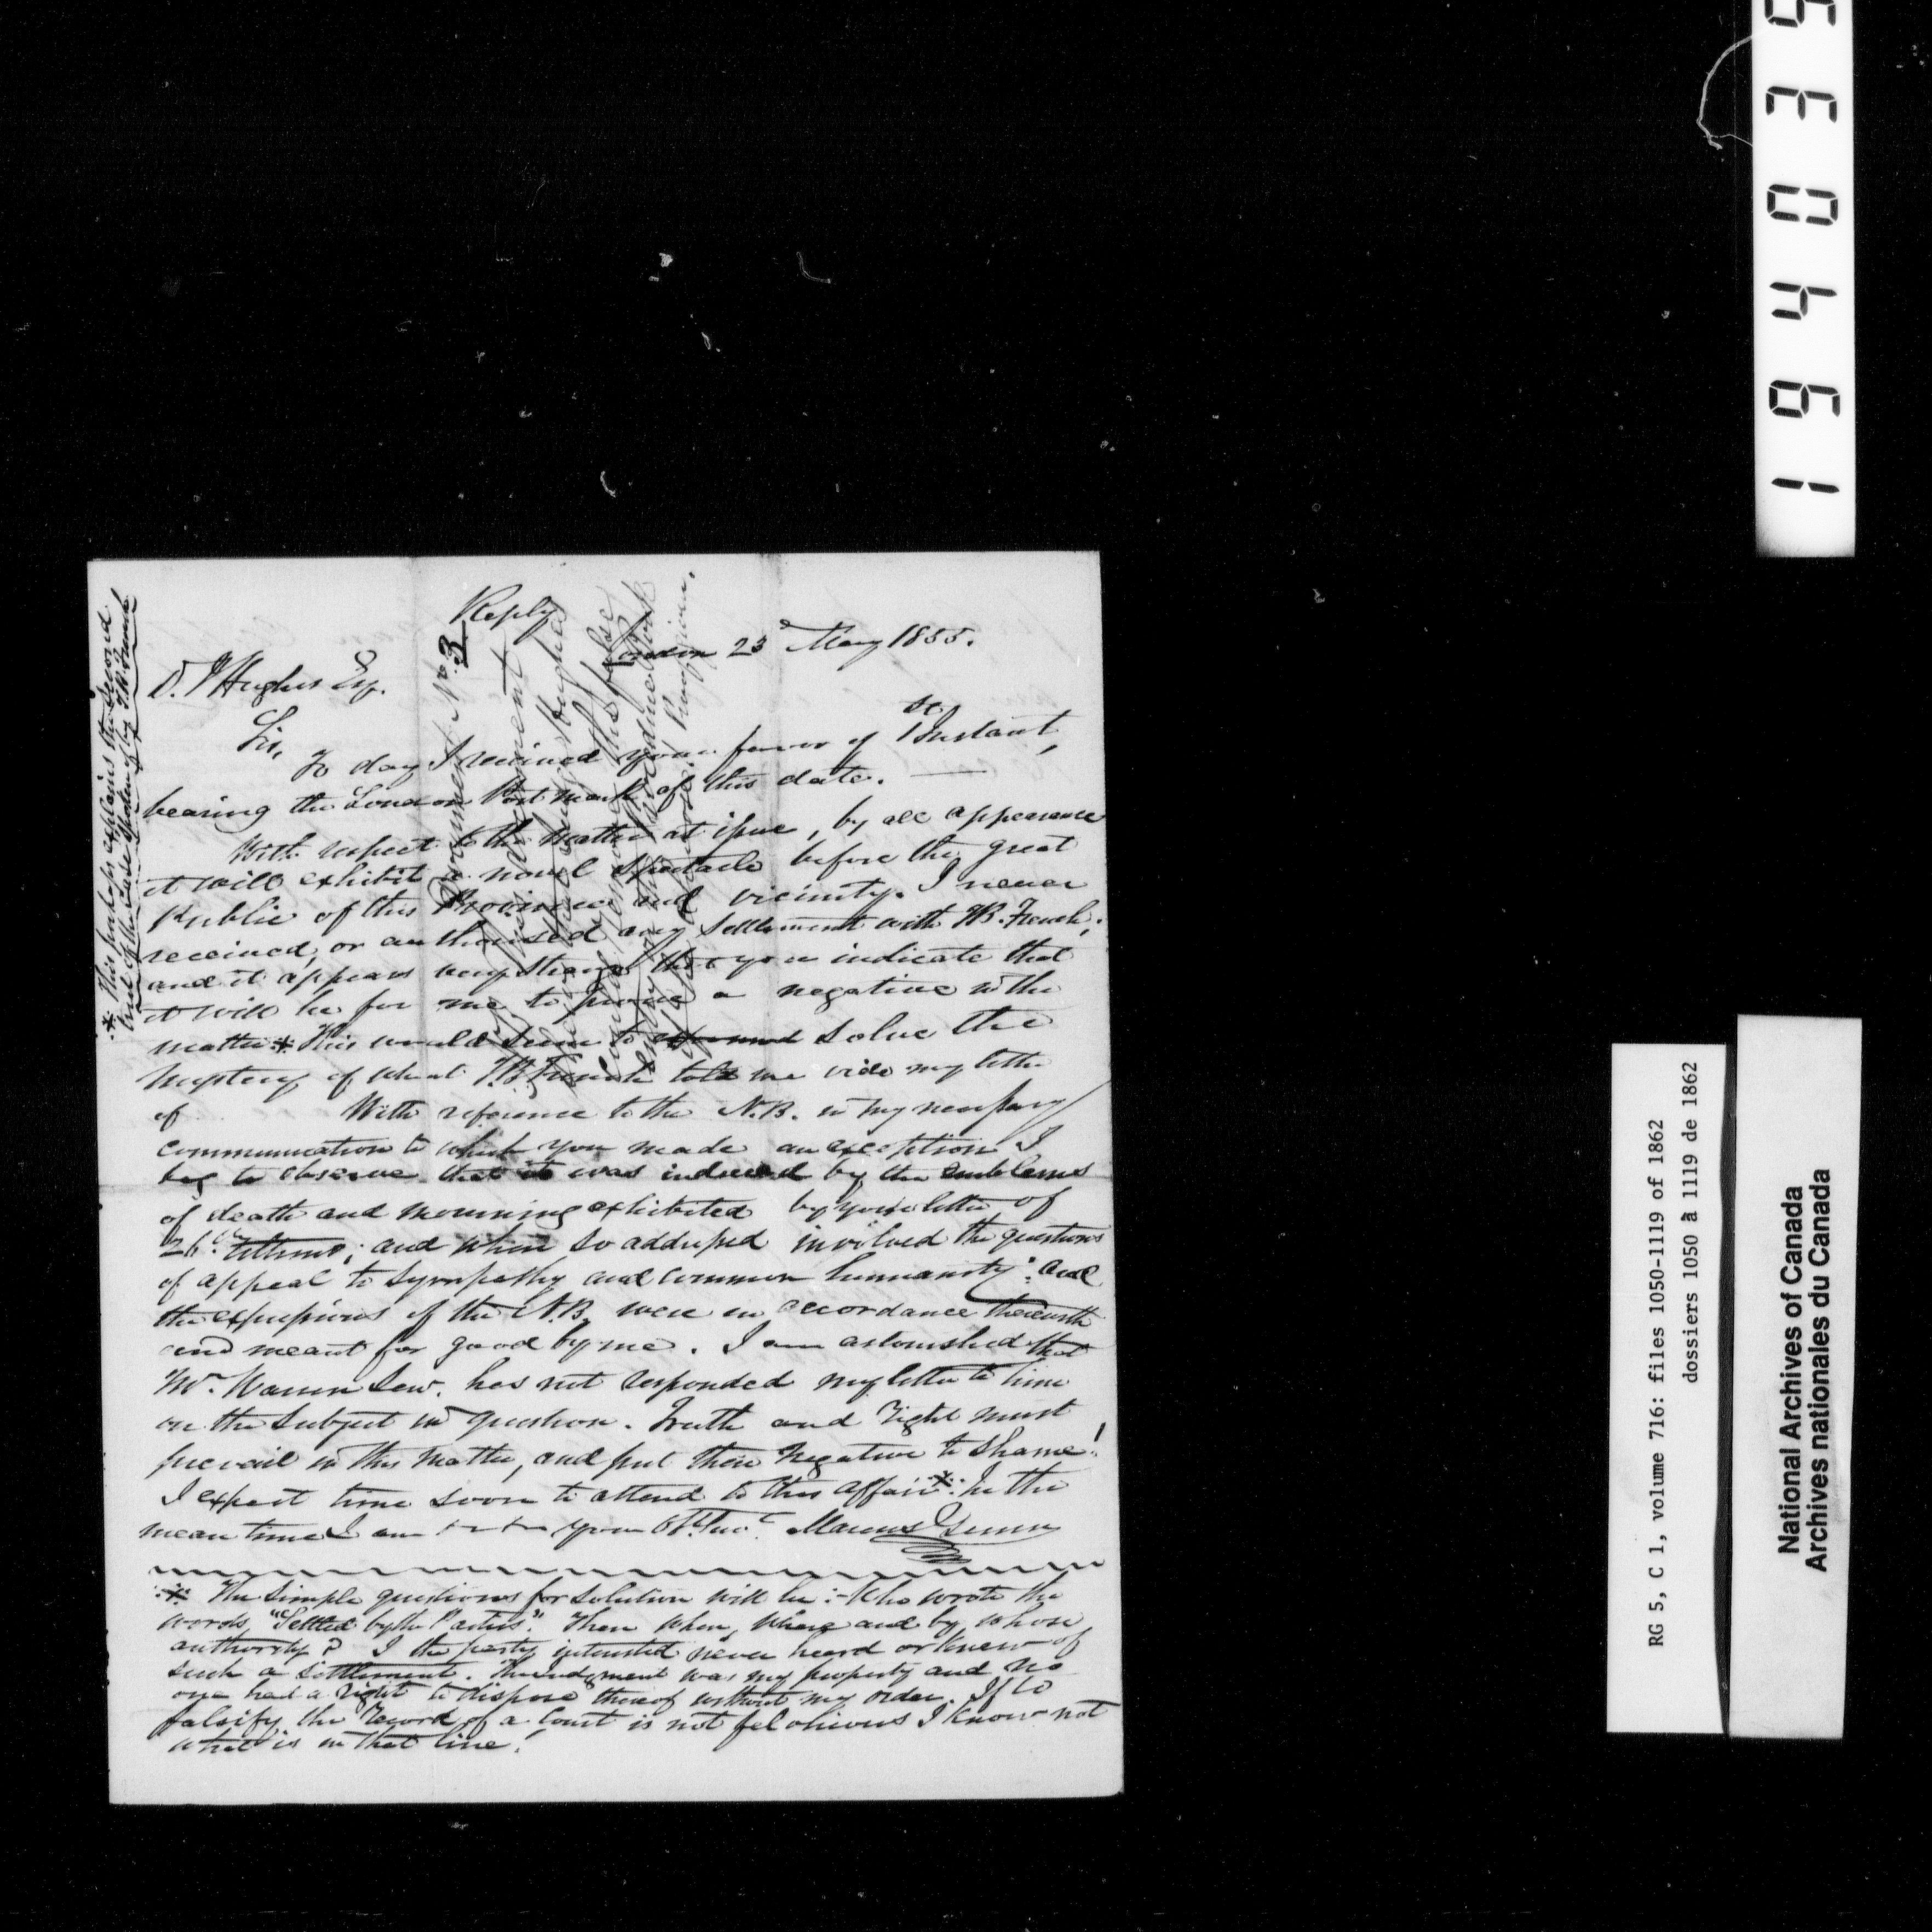 Reply
London 23d May 1855.
D. J Hughes Esq.
Sir,
To day I received your favor of 1st Instant,
bearing the London Post mark of this date.
With respect to the matter at issue, by all appearance
it will exhibit a novel spectacle before the great
Public of this Province and vicinity. I never
received, or authorised any settlement with French;
and it appears very strange that you indicate that
it will be for me to prove a negative in the
matter * This would seem to solve the
mystery of what French told me vide my letter
of With reference to the N.B. in my necessary
communication to which you made an exception I
beg to observe that it was induced by the emblems
of death and mourning exhibited by your letter of
26th Ultimo; and when so addressed involved the questions
of appeal to sympathy and common humanity: and
the expressions of the N.B. were in accordance therewith
and meant for good by me. I am astonished that
Mr. Warren has not responded my letter to him
on the subject in question. Truth and right must
prevail in this matter, and put the negative to shame!
I expect time soon to attend to this affair * In the
mean time I am your Obt. Marcus Gunn
* The simple questions for solution will be:- Who wrote the
words "Settled by the Parties". Then when, where and by whose
authority? I the party interested never heard or knew of
such a settlement. The Judgment was my property and no
one had a right to dispose thereof without my order. If to
falsify the record of a Court is not felonious I know not
what is in that line!
* This perhaps explains the second
Document No. 3
194035
RG 5, C 1, volume 716: files 1050-1119 of 1862
dossiers 1050 à 1119 de 1862
National Archives of Canada
Archives nationales du Canada